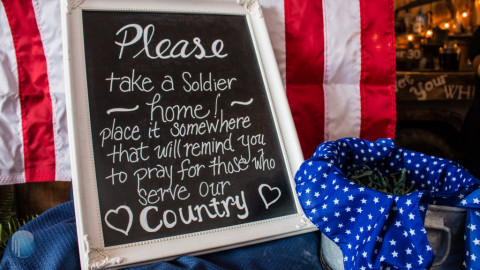 Please
take a Soldier
home!
place it somewhere
that will remind you
to pray for those who
serve our
Country
Your